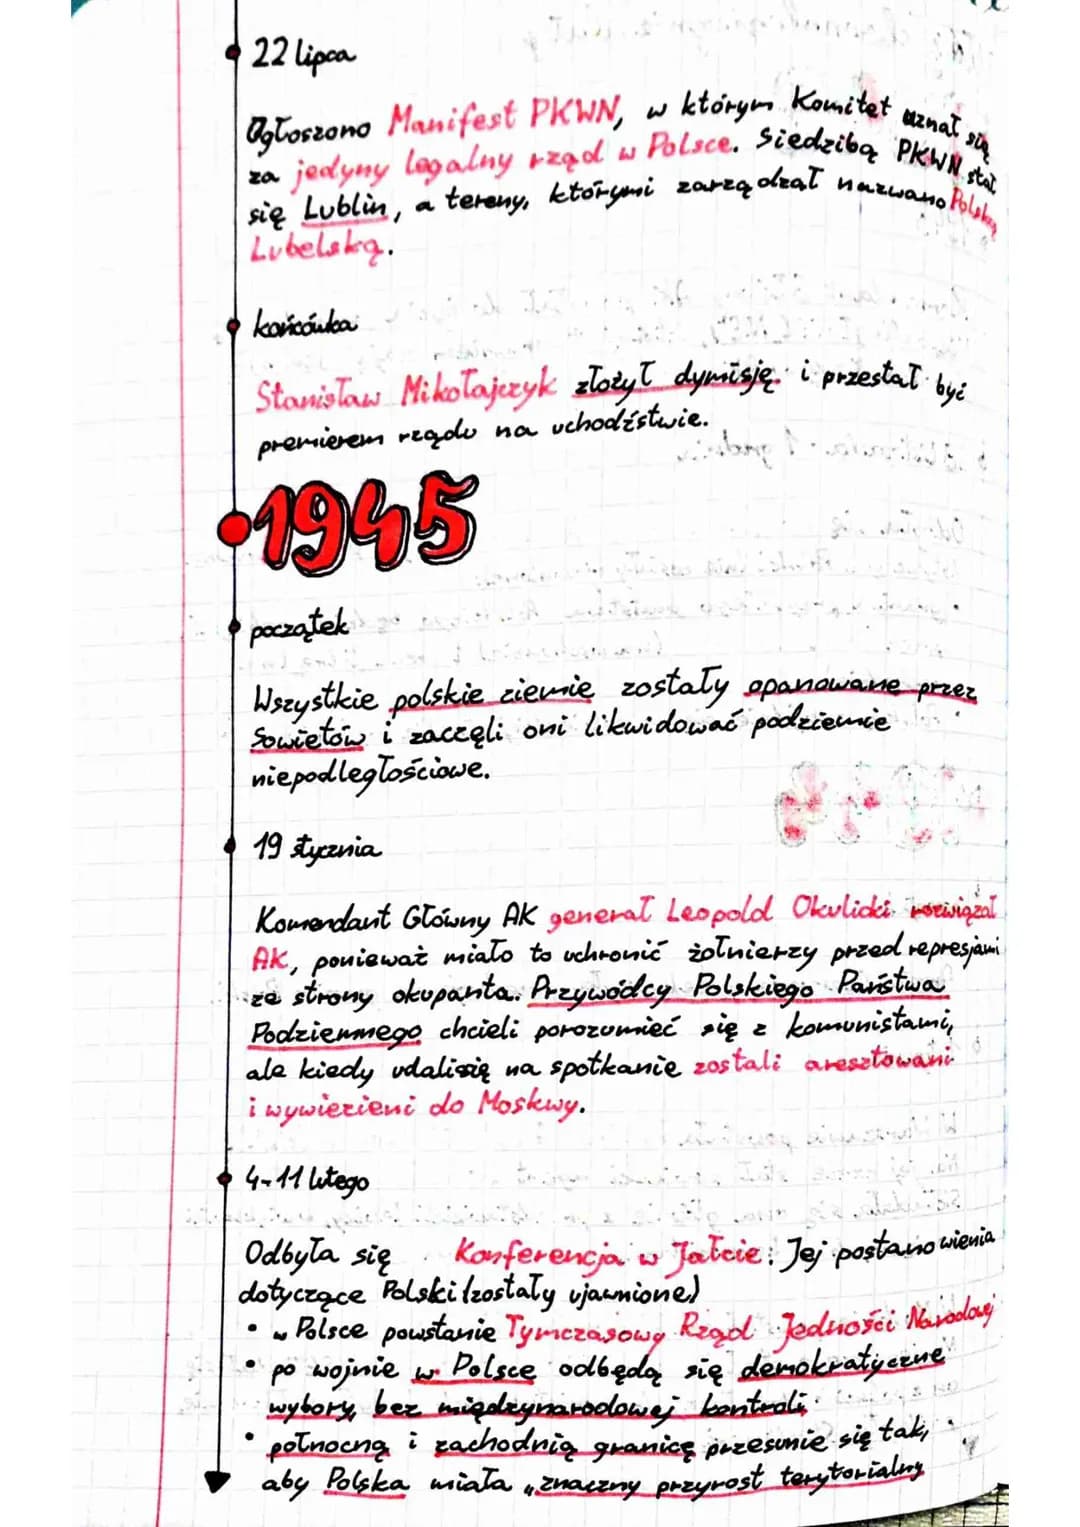 22 lipca
Ogłoszono Manifest PKWN, w którym Komitet uznał się
za jedyny legalny rząd w Polsce. Siedzibą PKWN stał
się Lublin, a tereny, którymi zarządzał nazwano Polską
Lubelską.
końcówka
Stanisław Mikołajczyk złożył dymisję i przestał być
premierem rządu na uchodźstwie.
1945
początek
Wszystkie polskie ziemie zostały opanowane przez
Sowietów i zaczęli oni likwidować podziemie
niepodległościowe.
19 stycznia
Komendant Główny AK generał Leopold Okulicki rozwiązał
AK, ponieważ miało to uchronić żołnierzy przed represjami
ze strony okupanta. Przywódcy Polskiego Państwa
Podziemnego chcieli porozumieć się z komunistami,
ale kiedy udali się na spotkanie zostali aresztowani
i wywiezieni do Moskwy.
4-11 lutego
Odbyła się Konferencja w Jałcie. Jej postanowienia
dotyczące Polski (zostały ujawnione)
• w Polsce powstanie Tymczasowy Rząd Jedności Narodowej
• po wojnie w Polsce odbędą się demokratyczne
wybory, bez międzynarodowej kontroli
• północną i zachodnią granicę przesunie się tak,
aby Polska miała „znaczny przyrost terytorialny